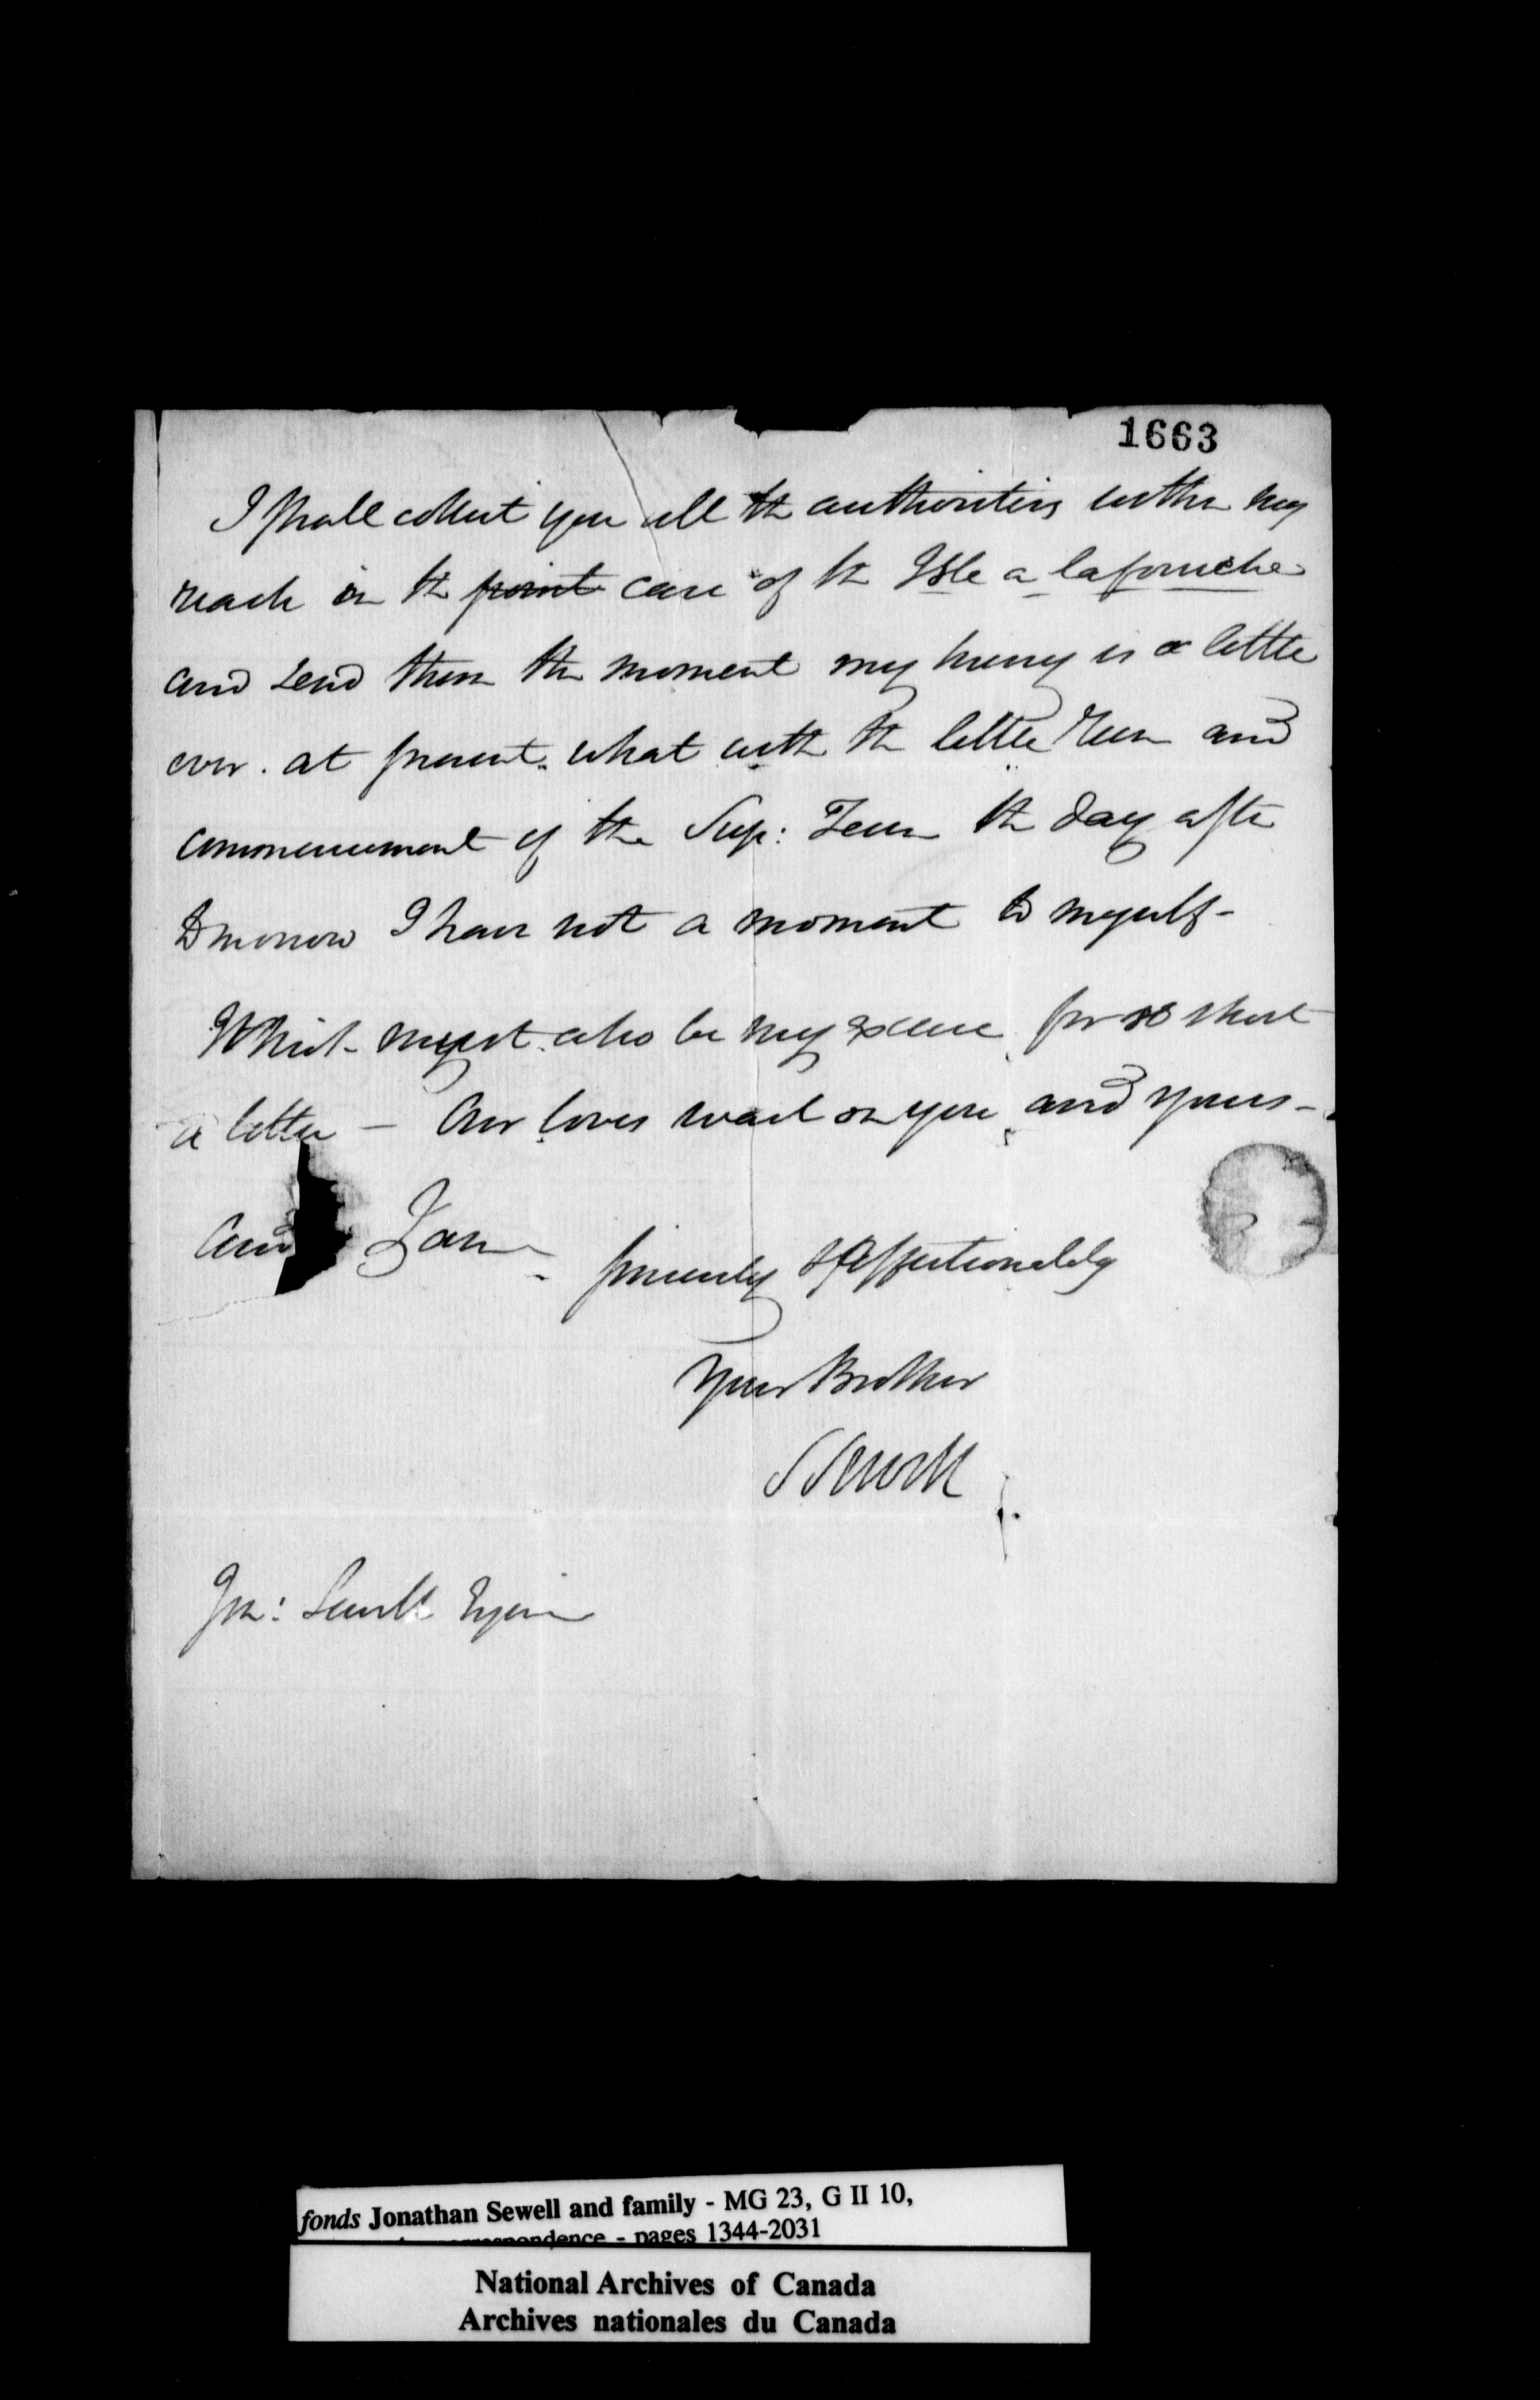 1663
I shall collect you all the authorities within my
reach in the point case of the Isle a lafourche
and send them the moment my hurry is a little
over. at present. what with the little Term and
commencement of the Sup: Term the day after
to morrow I have not a moment to myself -
Which must also be my excuse for so short
a letter - Our loves wait on you and yours -
and I am
sincerely & Affectionately
Your Brother
S Sewell
Jon: Sewell Esquire
fonds Jonathan Sewell and family - MG 23, G II 10,
correspondence - pages 1344-2031
National Archives of Canada
Archives nationales du Canada